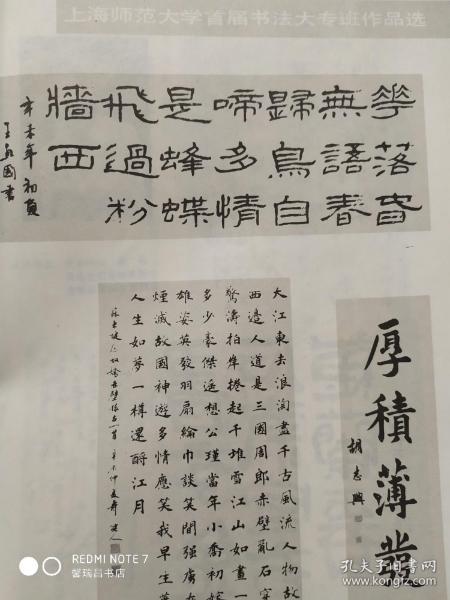 上海师范大学首届书法大专班作品选
華落旾
無語春
歸鳥自
啼多情
是蜂蝶
飛過粉
牆西
辛未年初夏
國書
大江東去浪淘盡千古風流人物故
西邊人道是三國周郎赤壁亂石穿
驚濤拍岸捲起千堆雪江山如畫一
多少豪傑遥想公瑾當年小喬初嫁
雄姿英發羽扇綸巾談笑間强虜
煙滅故國神遊多情應笑我早生
人生如夢一樽還酹江月
蘇東坡念奴嬌赤壁懷古一首辛未仲夏
厚積薄發
胡志興
REDMI NOTE 7
馨瑞昌书店
孔夫子旧书网